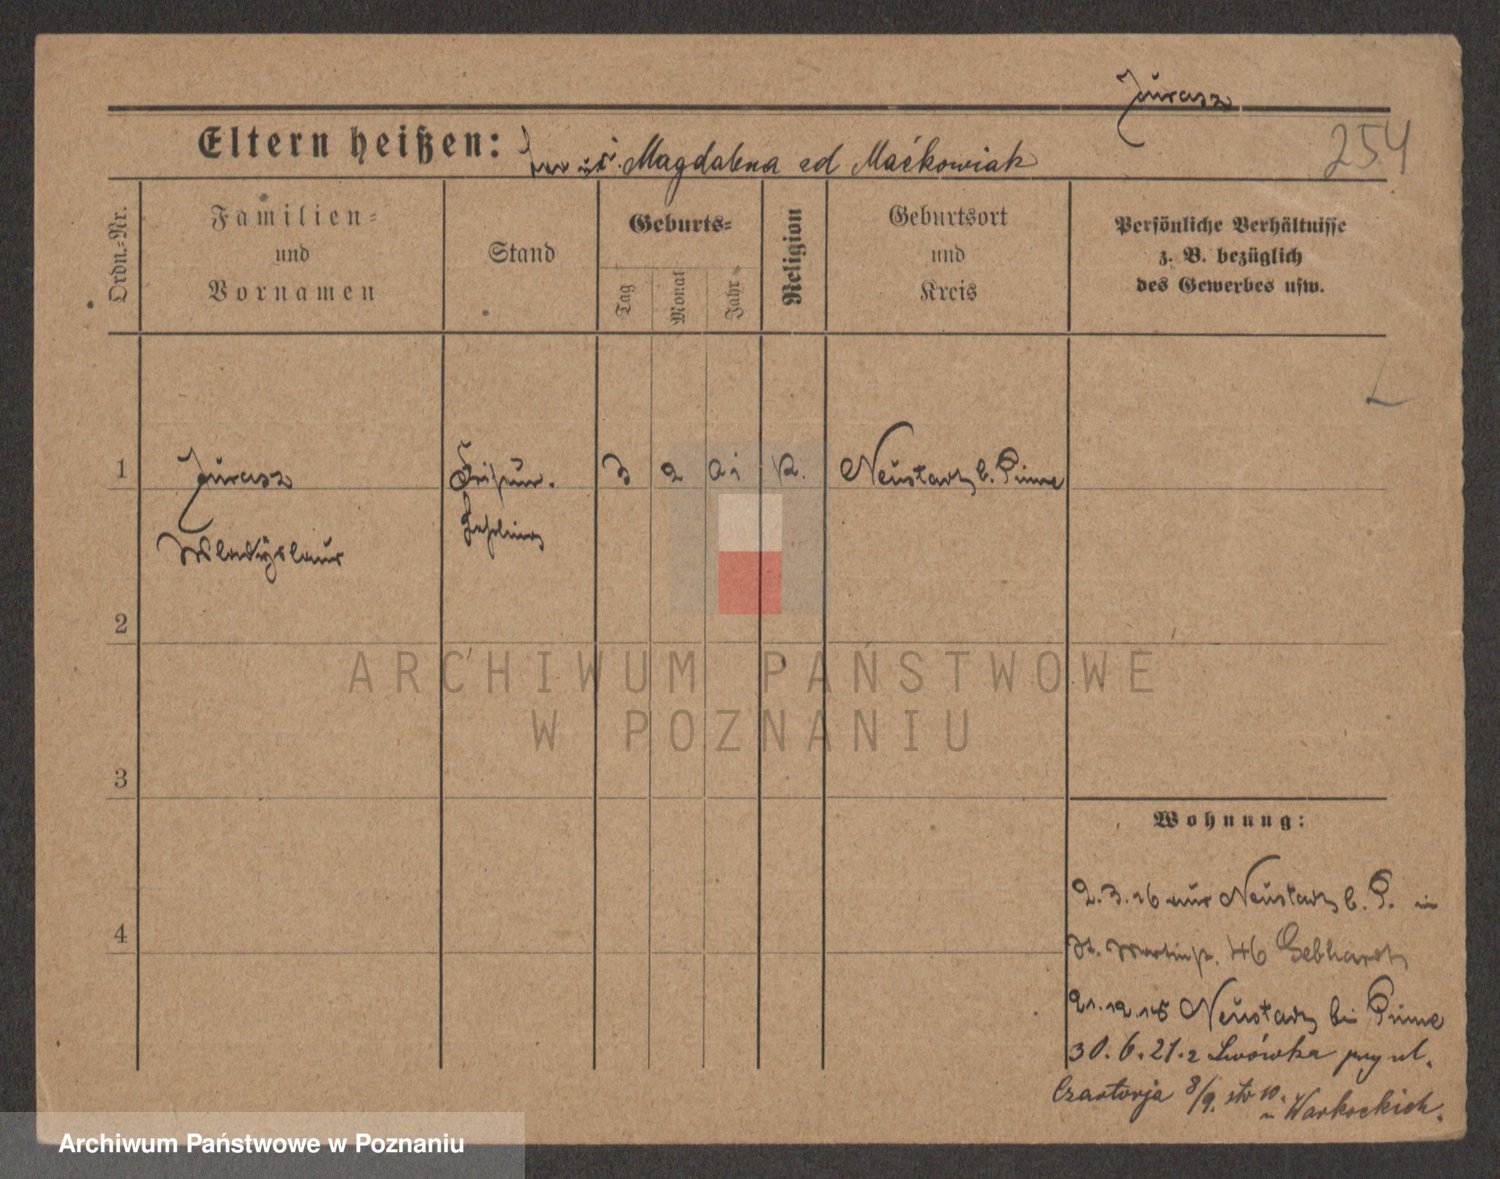 Jurasz
254
Eltern heißen: Magdalena ed Maćkowiak
Ordn.=Nr.
Familien=
und
Vornamen
Stand
Geburts=
Tag
Monat
Jahr
Religion
Geburtsort
und
Kreis
Persönliche Verhältnisse
z. B. bezüglich
des Gewerbes usw.
1
Jurasz
Frisör-
3 2 01 k. Neustadt b. Pinne
Lehrling
Wladyslaus
2
3
4
Wohnung:
2.3.16 Neustadt b. P. in
St. Martinstr. 46 Gebhardt
21.12.18 Neustadt bei Pinne
30.6.21. z Lwówka przy ul.
Czartorja 8/9. str 10.
u Warkockich.
ARCHIWUM PAŃSTWOWE
W POZNANIU
Archiwum Państwowe w Poznaniu